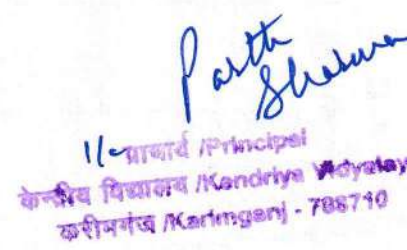 Parth
Sharma
I/c प्राचार्य /Principal
केन्द्रीय विद्यालय /Kendriya Vidyalay
करीमगंज /Karimganj - 788710